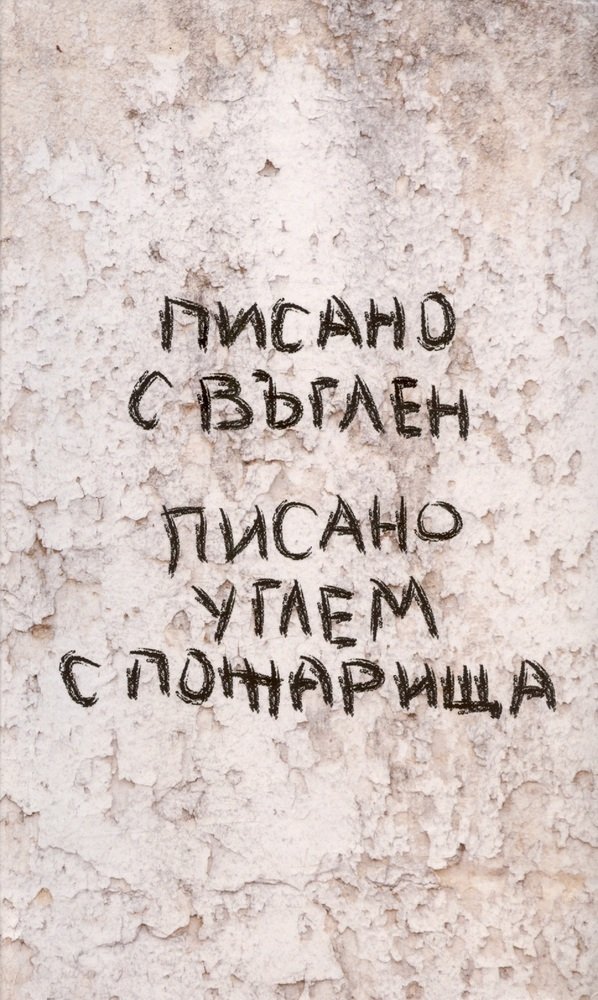 ПИСАНО
С ВЪГЛЕН
ПИСАНО
УГЛЕМ
С ПОЖАРИЩА